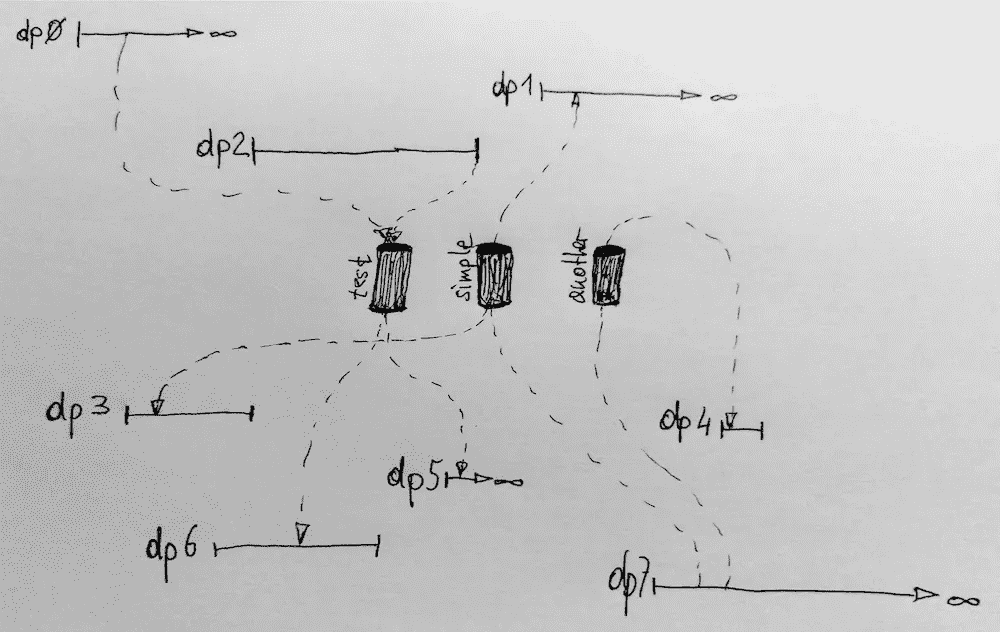 dp0 ∞
dp1 ∞
dp2
test
simple
another
dp3
dp4
dp5 ∞
dp6
dp7 ∞